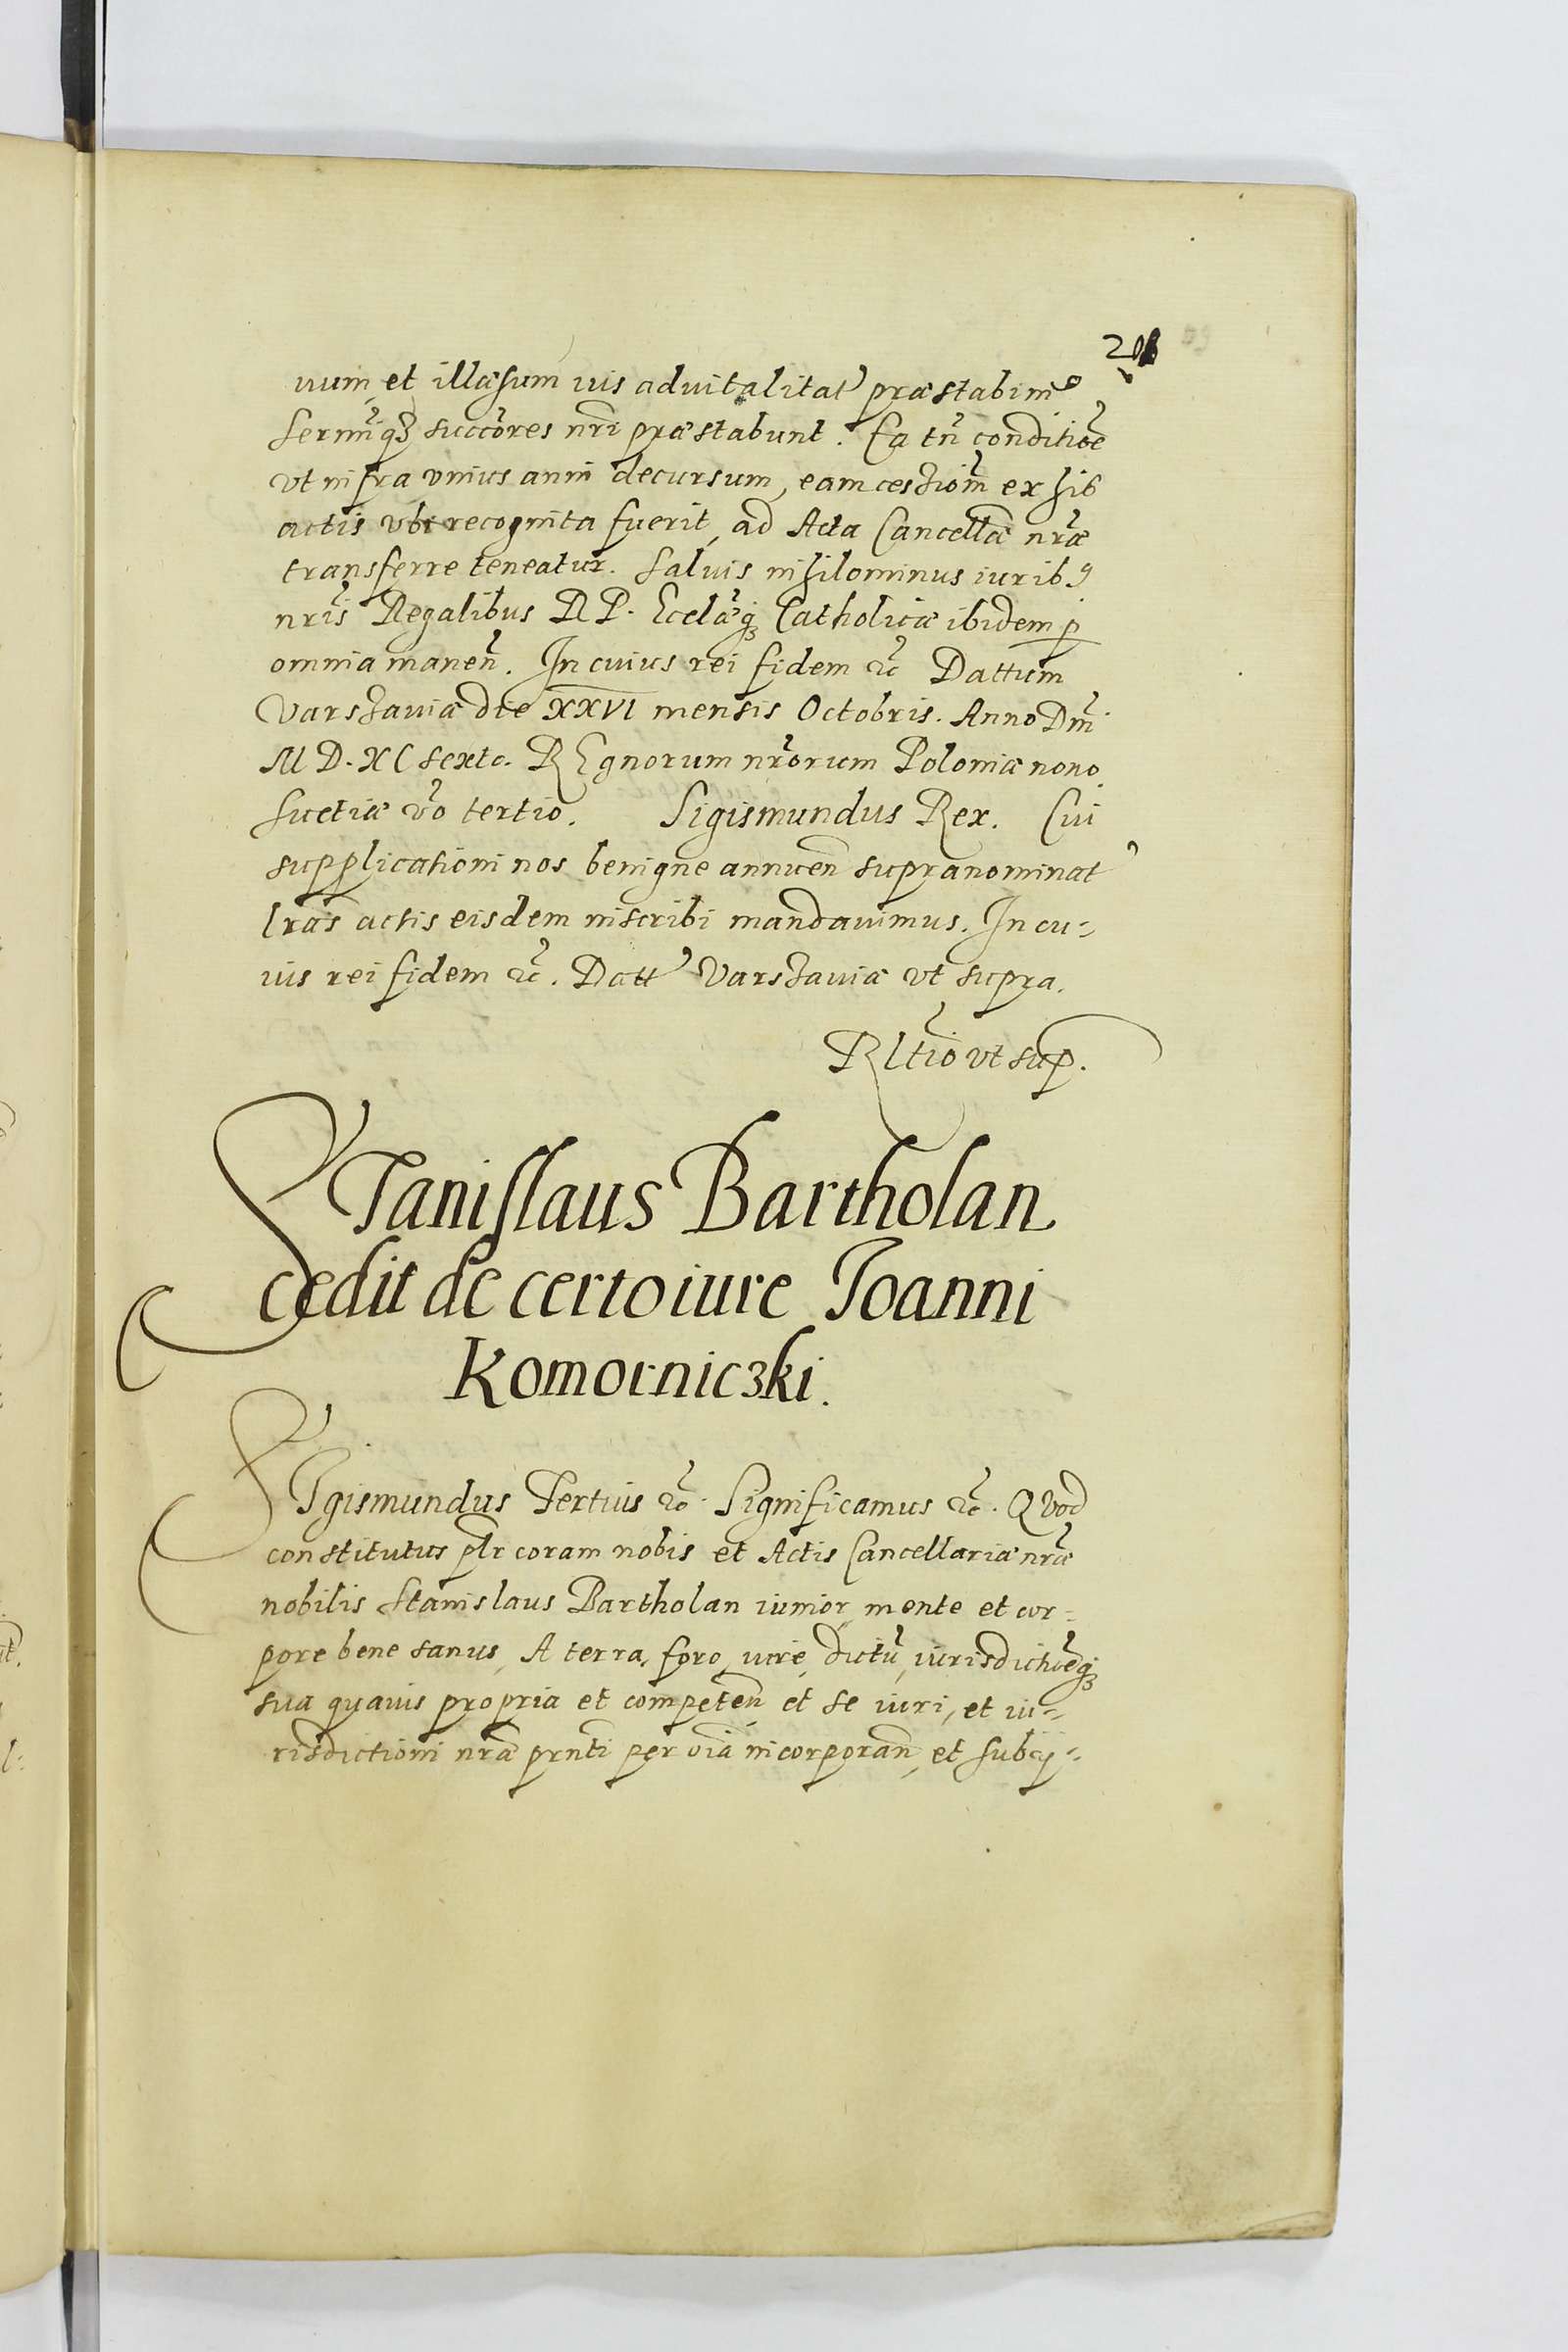 uum, et illæsum ius aduitalitat' præstabim9
Sermiq3 succores nri præstabunt. Ea tn conditioe
vt infra vnius anni decursum, eam cessiom ex hib
actis vbi recognita fuerit, ad Acta Cancellæ nræ
transferre teneatur. Saluis nihilominus iurib9
nris Regalibus R P. Eccláq3 Catholicæ ibidem p
omnia manen. In cuius rei fidem &c Dattum
Varszauiæ die XXVI mensis Octobris. Anno Dm
M D. XC sexto. REgnorum nrorum Poloniæ nono
Suetiæ vo tertio. Sigismundus Rex. Cui
supplicationi nos benigne annuen supranominat'
lras actis eisdem inscribi mandauimus. In cu-
ius rei fidem &c. Datt' Varszauiæ vt supra.
Rltio vt sup.
STanislaus Bartholan
cedit de certo iure Joanni
Komorniczki.
SIgismundus Tertius &c. Significamus &c. QVod
constitutus plr coram nobis et Actis Cancellariæ nræ
nobilis Stanislaus Bartholan iunior, mente et cor-
pore bene sanus, A terra, foro, iure, dictu, iurisdictioeq3
sua quauis propria et competen et se iuri, et iu-
risdictioni nræ prnti per oia incorporan, et subij-